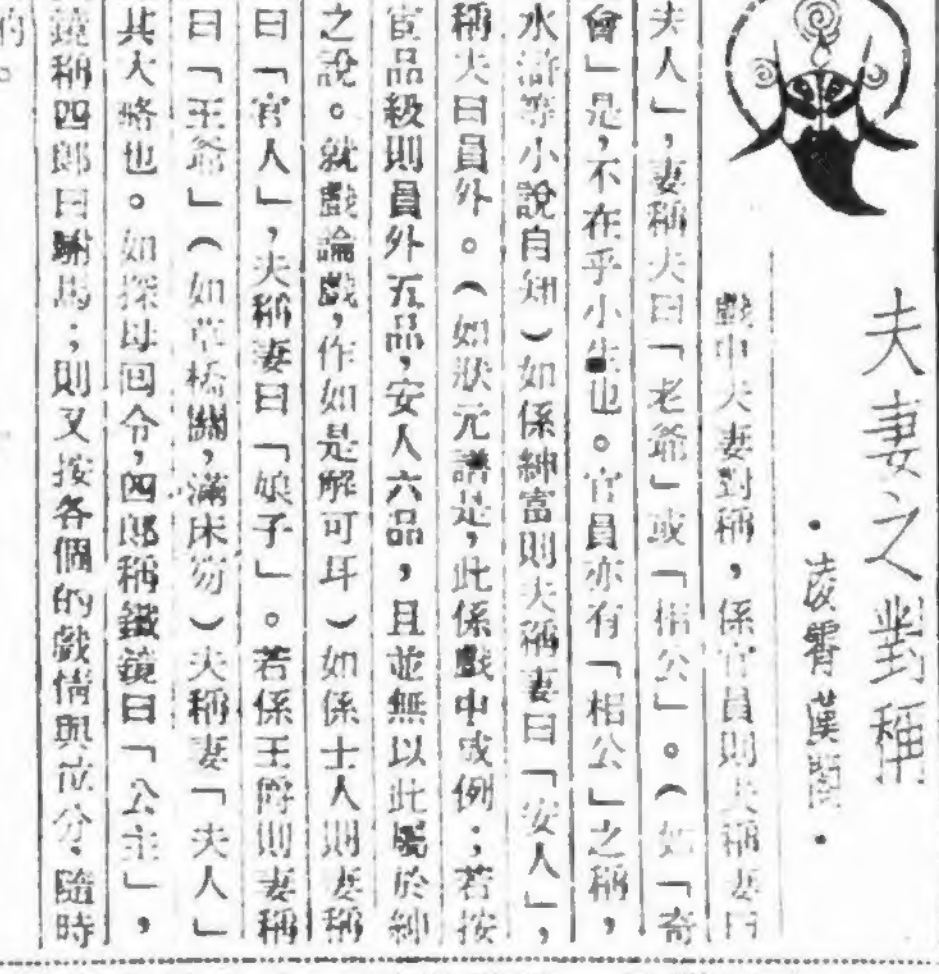 夫妻之對稱
·凌霄漢閣·
戲中夫妻對稱,係官員則夫稱妻曰
夫人」,妻稱夫曰「老爺」或「相公」。(如「奇
會」是,不在乎小生也。官員亦有「相公」之稱,
水滸等小說自知)如係紳富則夫稱妻曰「安人」,
稱夫曰員外。(如狀元譜是,此係戲中成例;若按
官品級則員外五品,安人六品,且並無以此屬於紳
之說。就戲論戲,作如是解可耳)如係士人則妻稱
曰「官人」,夫稱妻曰「娘子」。若係王爵則妻稱
曰「王爺」(如草橋關,滿床笏)夫稱妻「夫人」
其大略也。如探母回令,四郎稱鐵鏡曰「公主」,
鏡稱四郎曰駙馬;則又按各個的戲情與位分,隨時
的。